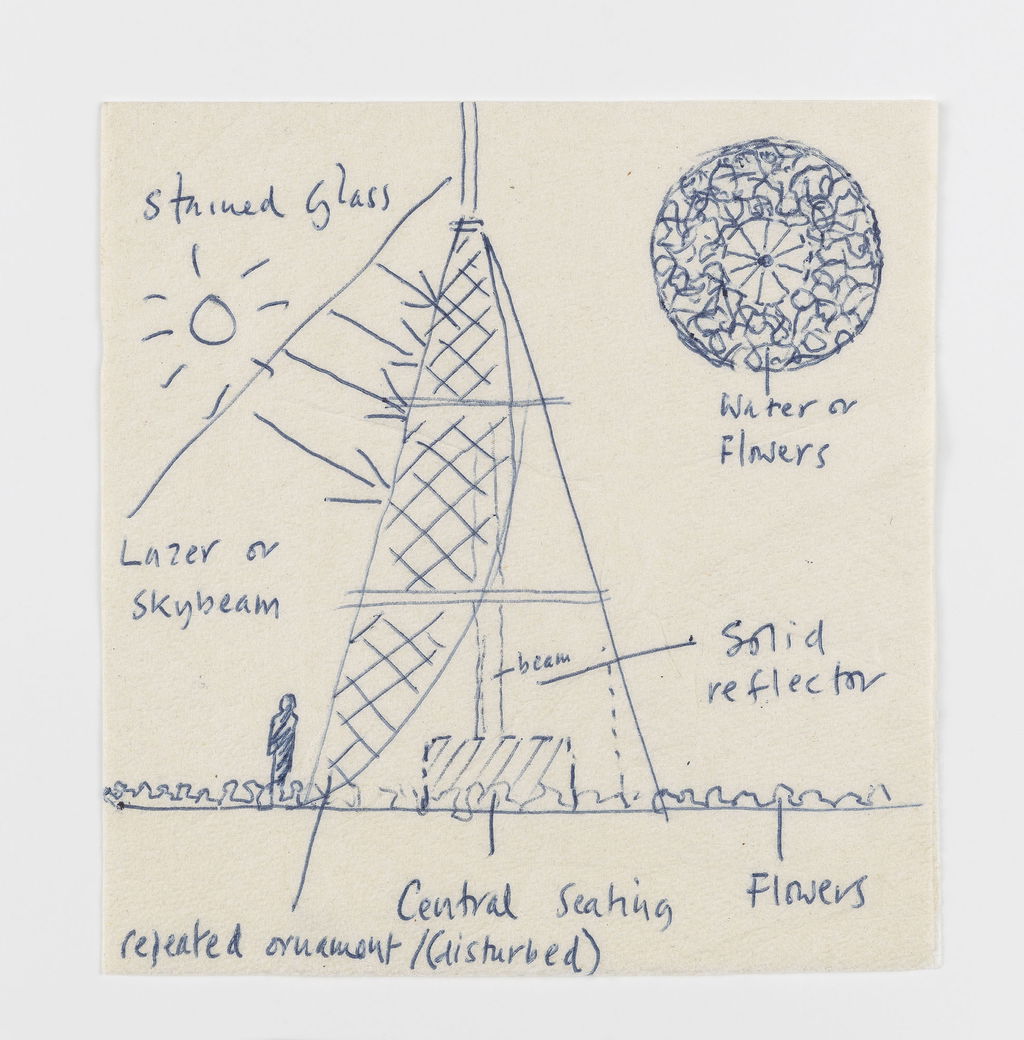 Stained Glass
Water or
Flowers
Lazer or
Skybeam
beam
Solid
reflector
Central Seating
Flowers
repeated ornament/(disturbed)